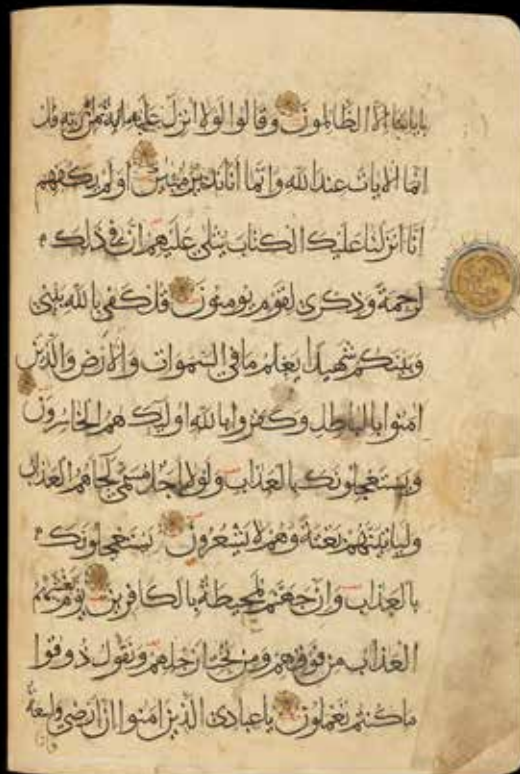 باياتنا الا الظالمون وقالوا لولا انزل عليه اية من ربه قل
انما الايات عند الله وانما انا نذير مبين اولم يكفهم
انا انزلنا عليك الكتاب يتلى عليهم ان في ذلك
لرحمة وذكرى لقوم يومنون قل كفى بالله بيني
وبينكم شهيدا يعلم ما في السموات والارض والذين
امنوا بالباطل وكفروا بالله اوليك هم الخاسرون
ويستعجلونك بالعذاب ولولا اجل مسمى لجاهم العذاب
ولياتينهم بغتة وهم لا يشعرون يستعجلونك
بالعذاب وان جهنم لمحيطة بالكافرين يوم يغشيهم
العذاب من فوقهم ومن تحت ارجلهم ونقول ذوقوا
ما كنتم تعملون يا عبادي الذين امنوا ان ارضي واسعة